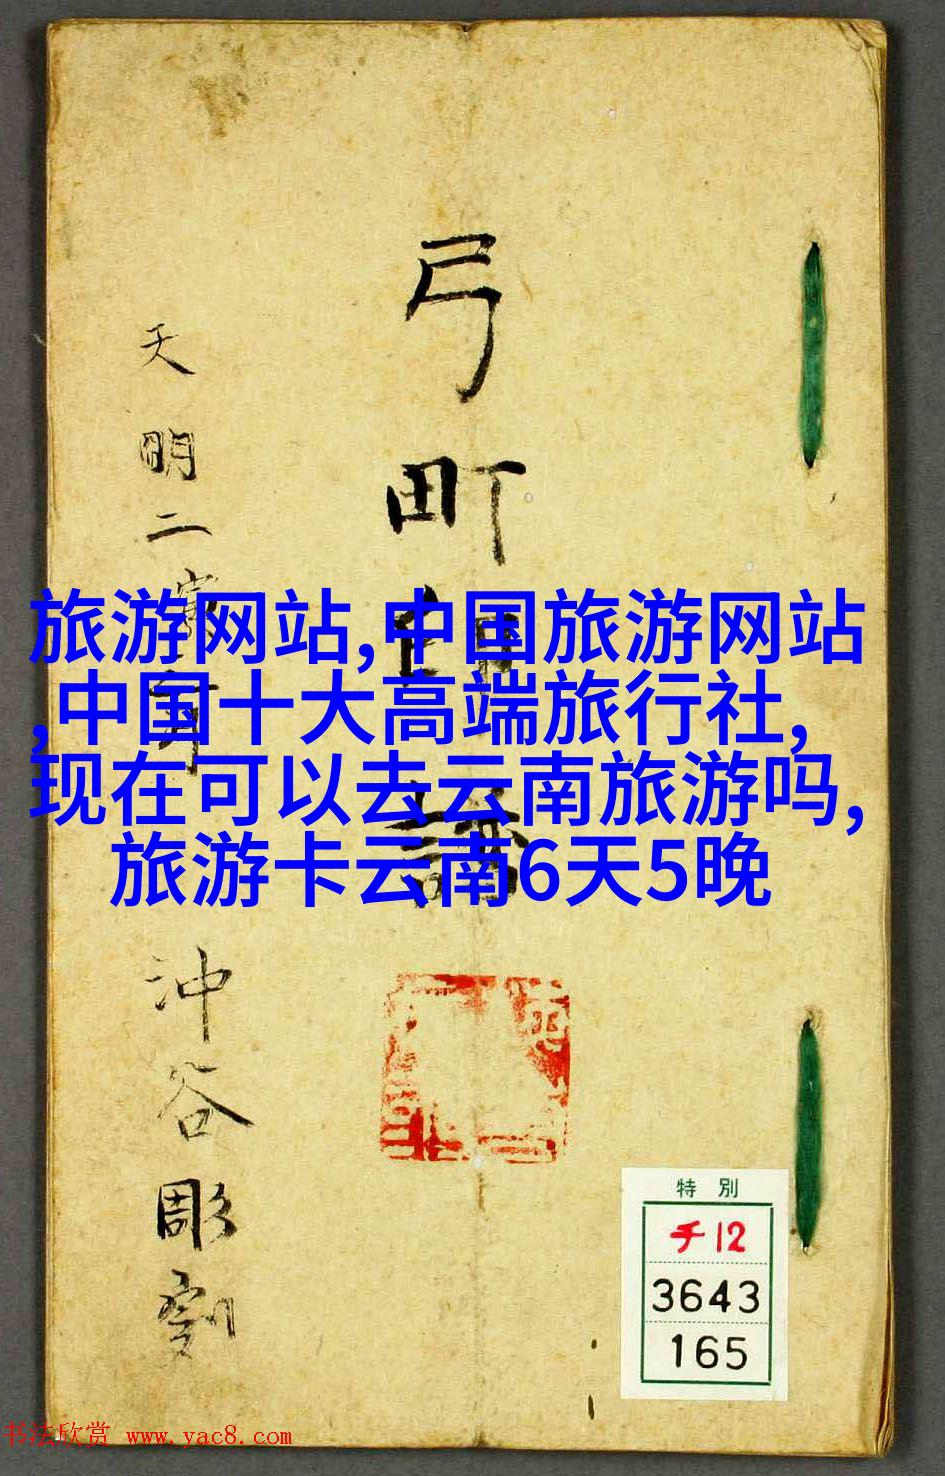 弓町
天明二寅
旅游网站,中国旅游网站
,中国十大高端旅行社,
现在可以去云南旅游吗,
旅游卡云南6天5晚
沖谷彫刻
特別
チ12
3643
165
书法欣赏 www.yac8.com